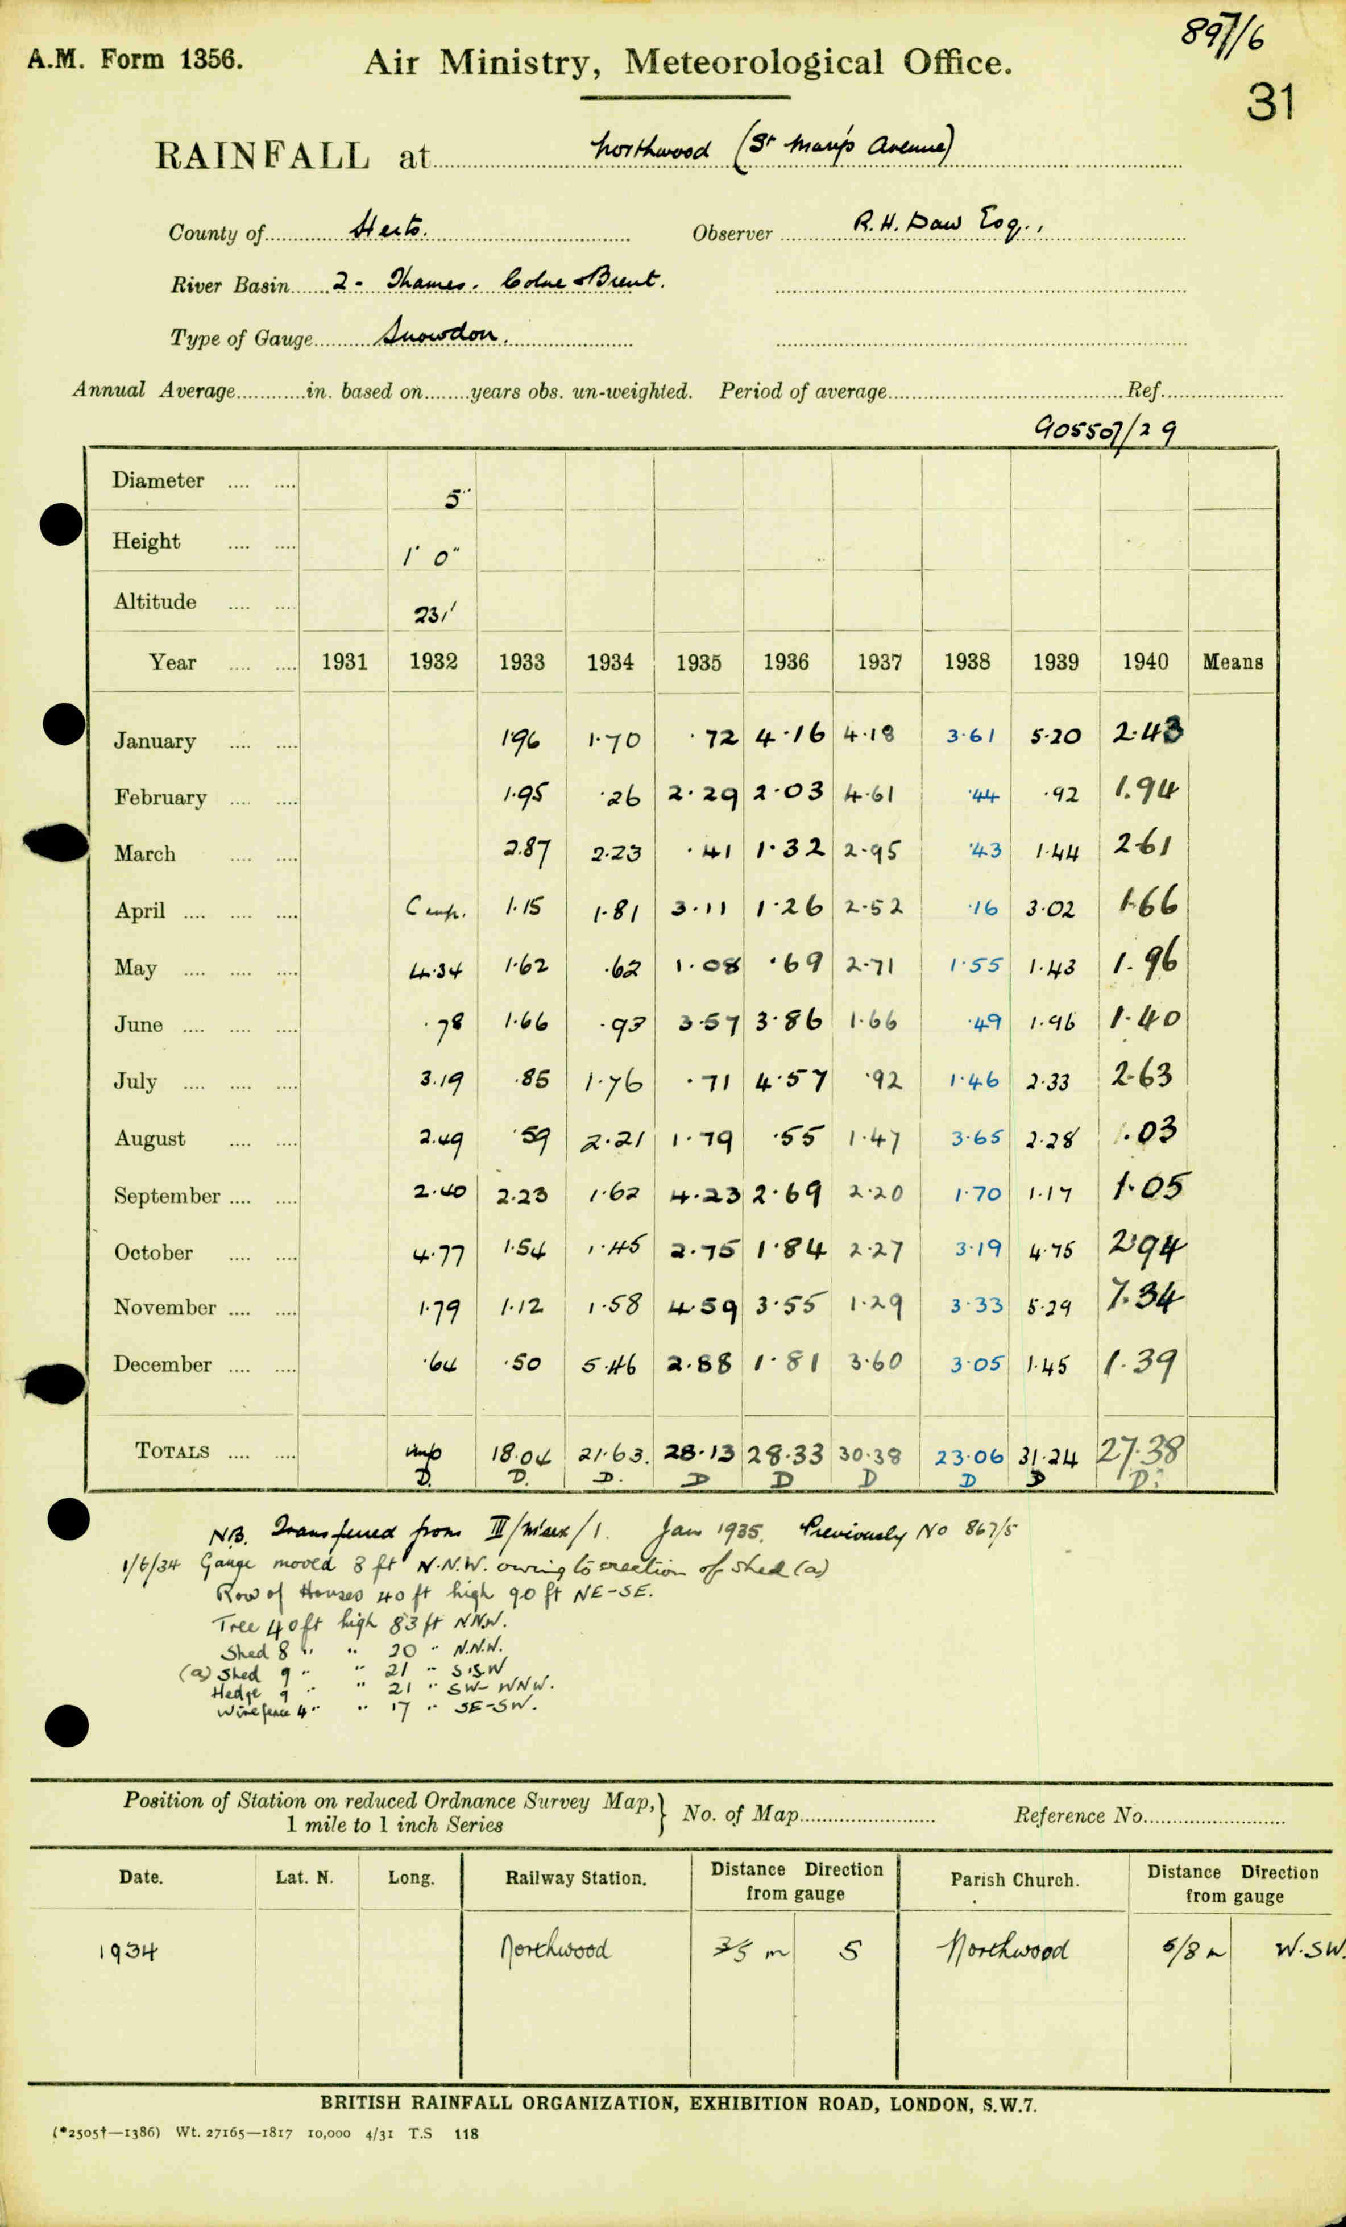 897/6
A.M. Form 1356.
Air Ministry, Meteorological Office.
31
RAINFALL at Northwood (St Mary's Avenue)
County of Herts. Observer R.H. Daw Esq.,
River Basin 2 - Thames. Colne & Brent.
Type of Gauge Snowdon.
Annual Average............in. based on........years obs. un-weighted. Period of average.............Ref.............
90550/29
Diameter .... .... 5"
Height .... .... 1' 0"
Altitude .... .... 231'
Year .... .... 1931 1932 1933 1934 1935 1936 1937 1938 1939 1940 Means
January .... .... 1.96 1.70 .72 4.16 4.18 3.61 5.20 2.43
February .... .... 1.95 .26 2.29 2.03 4.61 .44 .92 1.94
March .... .... 2.87 2.23 .41 1.32 2.95 .43 1.44 2.61
April .... .... .... 1.15 1.81 3.11 1.26 2.52 .16 3.02 1.66
May .... .... .... 4.34 1.62 .62 1.08 .69 2.71 1.55 1.43 1.96
June .... .... .... .78 1.66 .93 3.57 3.86 1.66 .49 1.96 1.40
July .... .... .... 3.19 .85 1.76 .71 4.57 .92 1.46 2.33 2.63
August .... .... 2.49 .59 2.21 1.79 .55 1.47 3.65 2.28 .03
September .... .... 2.40 2.23 1.62 4.23 2.69 2.20 1.70 1.17 1.05
October .... .... 4.77 1.54 1.45 2.75 1.84 2.27 3.19 4.75 2.94
November .... .... 1.79 1.12 1.58 4.59 3.55 1.29 3.33 5.29 7.34
December .... .... .64 .50 5.46 2.88 1.81 3.60 3.05 1.45 1.39
TOTALS .... .... 18.04 21.63. 28.13 28.33 30.38 23.06 31.24 27.38
D. D. D. D D D D D D.
N.B. Transferred from III/M'sex/1. Jan 1935. Previously No 867/5
1/6/34 Gauge moved 8 ft N.N.W. owing to erection of shed (a)
Row of Houses 40 ft high 90 ft NE-SE.
Tree 40 ft high 83 ft NNW.
Shed 8 " " 20 " N.N.W.
(a) Shed 9 " " 21 " S.SW
Hedge 9 " " 21 " SW- WNW.
Wire fence 4 " " 17 " SE-SW.
Position of Station on reduced Ordnance Survey Map,} No. of Map............ Reference No.............
1 mile to 1 inch Series
Date. Lat. N. Long. Railway Station. Distance Direction from gauge Parish Church. Distance Direction from gauge
1934 Northwood 3/5 m S Northwood 5/8 m W.SW.
BRITISH RAINFALL ORGANIZATION, EXHIBITION ROAD, LONDON, S.W.7.
(*2505†—1386) Wt. 27165—1817 10,000 4/31 T.S 118